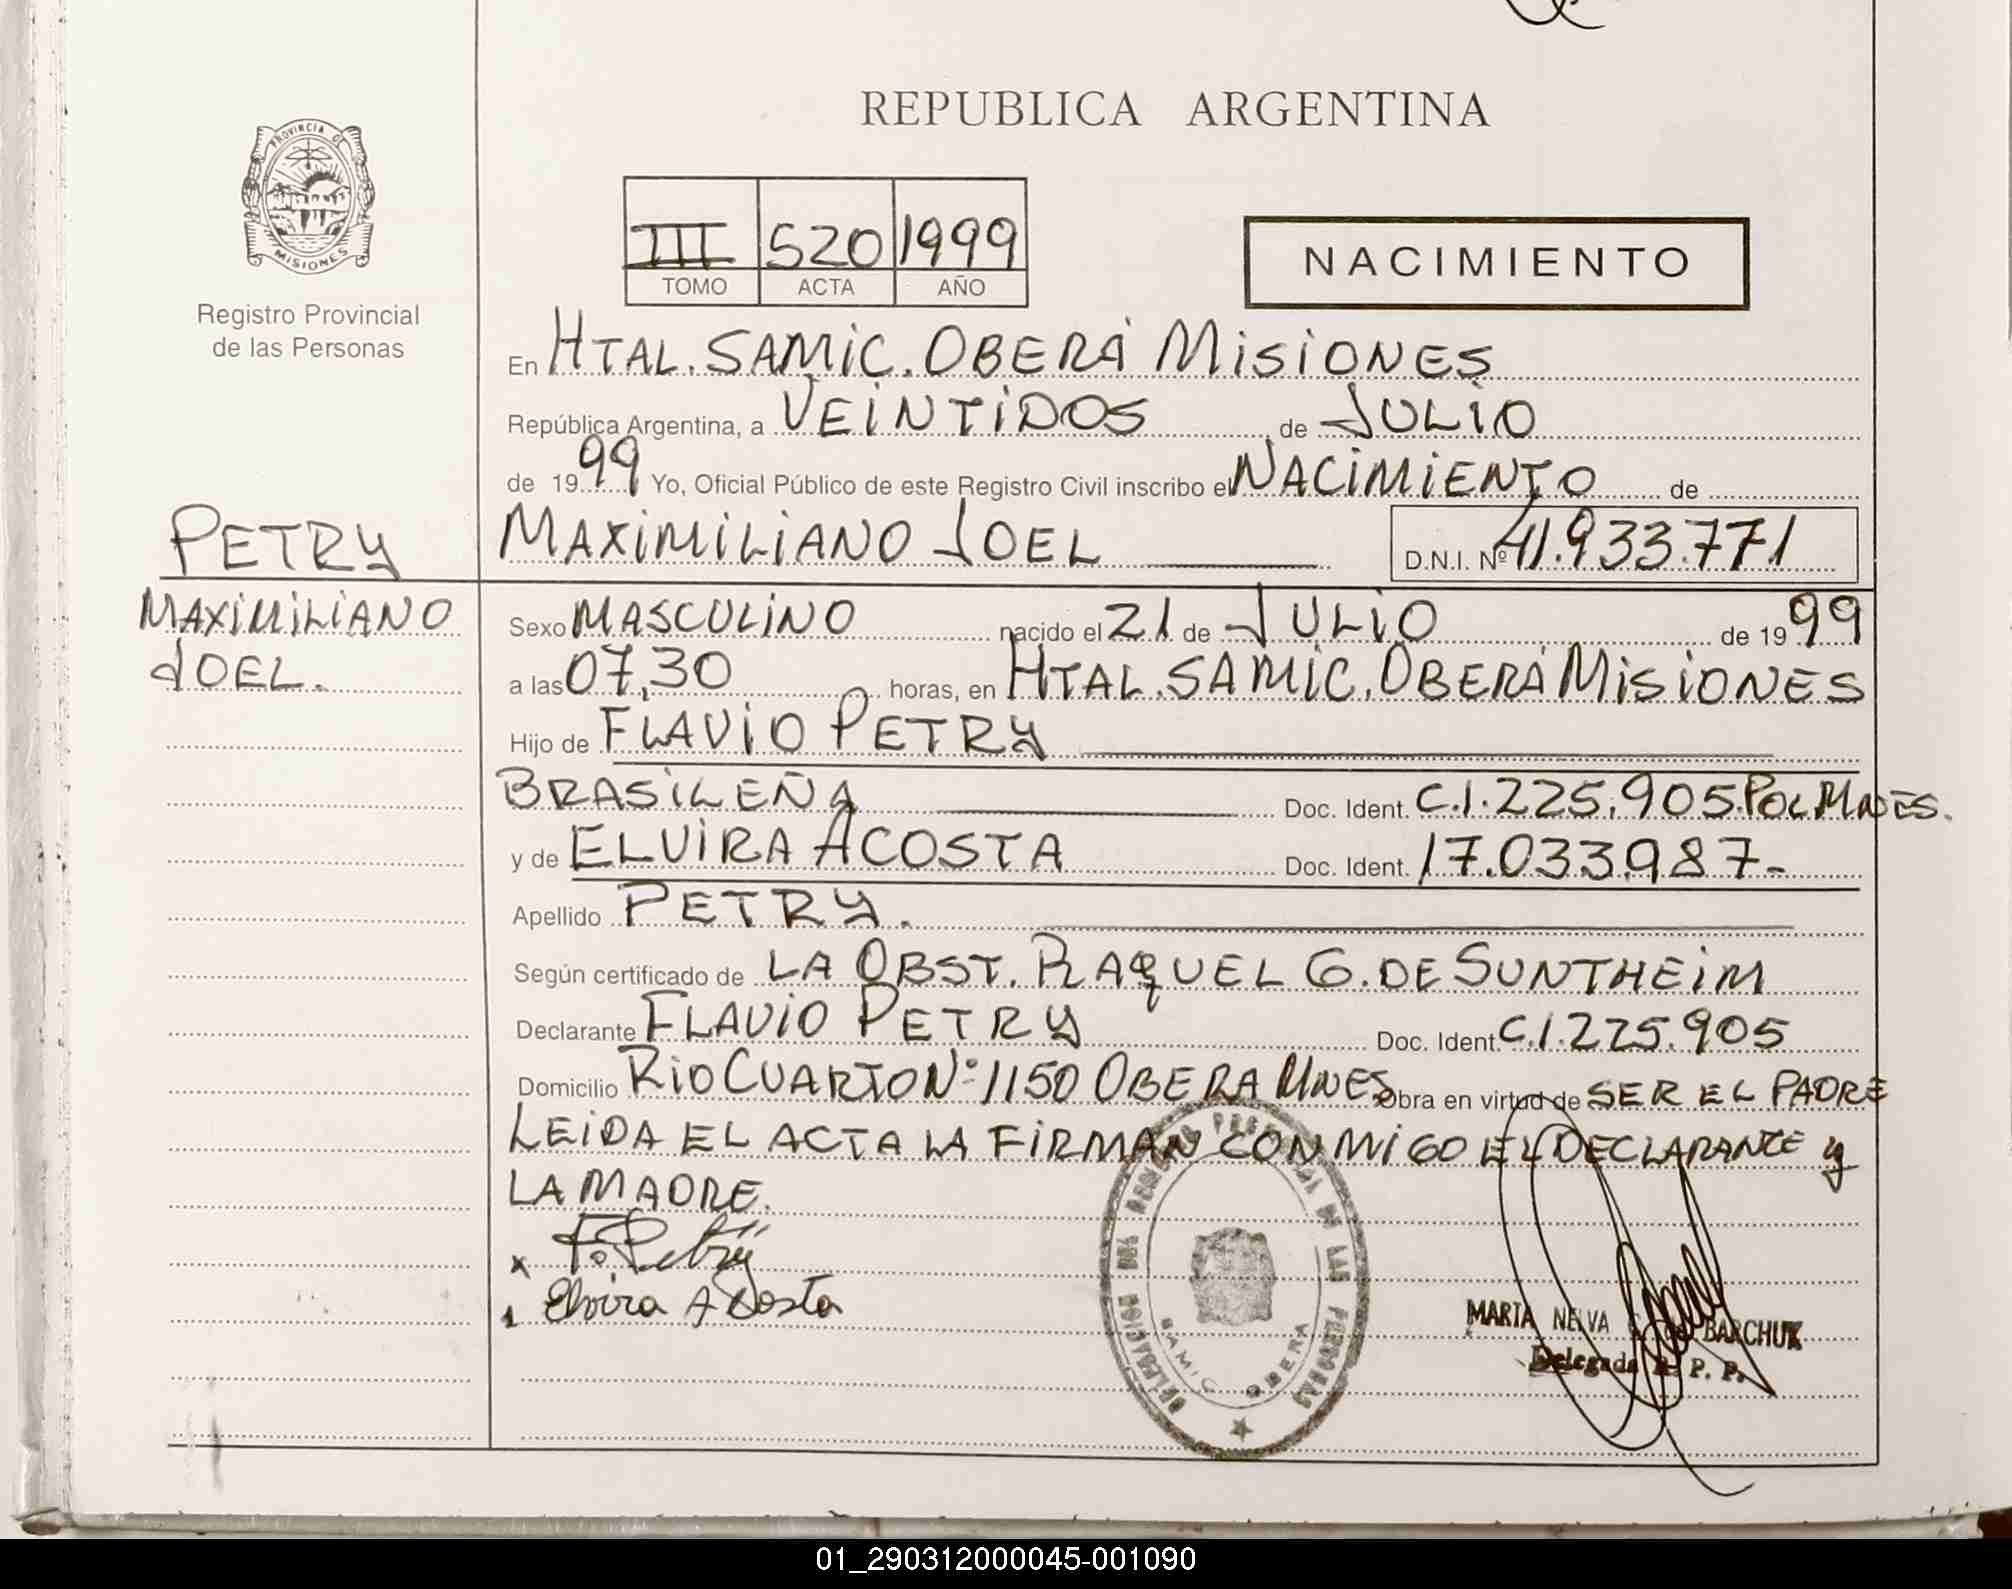 REPUBLICA ARGENTINA
PROVINCIA DE
MISIONES
Registro Provincial
de las Personas
III 520 1999
TOMO ACTA AÑO
NACIMIENTO
En HTAL. SAMIC. OBERÁ MISIONES
República Argentina, a VEINTIDOS de JULIO
de 1999 Yo, Oficial Público de este Registro Civil inscribo el NACIMIENTO de
PETRY
MAXIMILIANO JOEL D.N.I. Nº 41.933.771
MAXIMILIANO
JOEL.
Sexo MASCULINO nacido el 21 de JULIO de 1999
a las 07,30 horas, en HTAL. SAMIC. OBERÁ MISIONES
Hijo de FLAVIO PETRY
BRASILEÑA Doc. Ident. C.I. 225.905 POL MNES.
y de ELVIRA ACOSTA Doc. Ident. 17.033.987-
Apellido PETRY.
Según certificado de LA OBST. RAQUEL G. DE SUNTHEIM
Declarante FLAVIO PETRY Doc. Ident. C.I. 225.905
Domicilio RIO CUARTO Nº 1150 OBERA MNES Obra en virtud de SER EL PADRE
LEIDA EL ACTA LA FIRMAN CONMIGO EL DECLARANTE y
LA MADRE.
x F. Petry
Elvira Acosta
DELEGACION DEL REGISTRO PROVINCIAL DE LAS PERSONAS
SAMIC OBERA
MARIA NELVA BARCHUK
Delegada R. P. P.
01_290312000045-001090